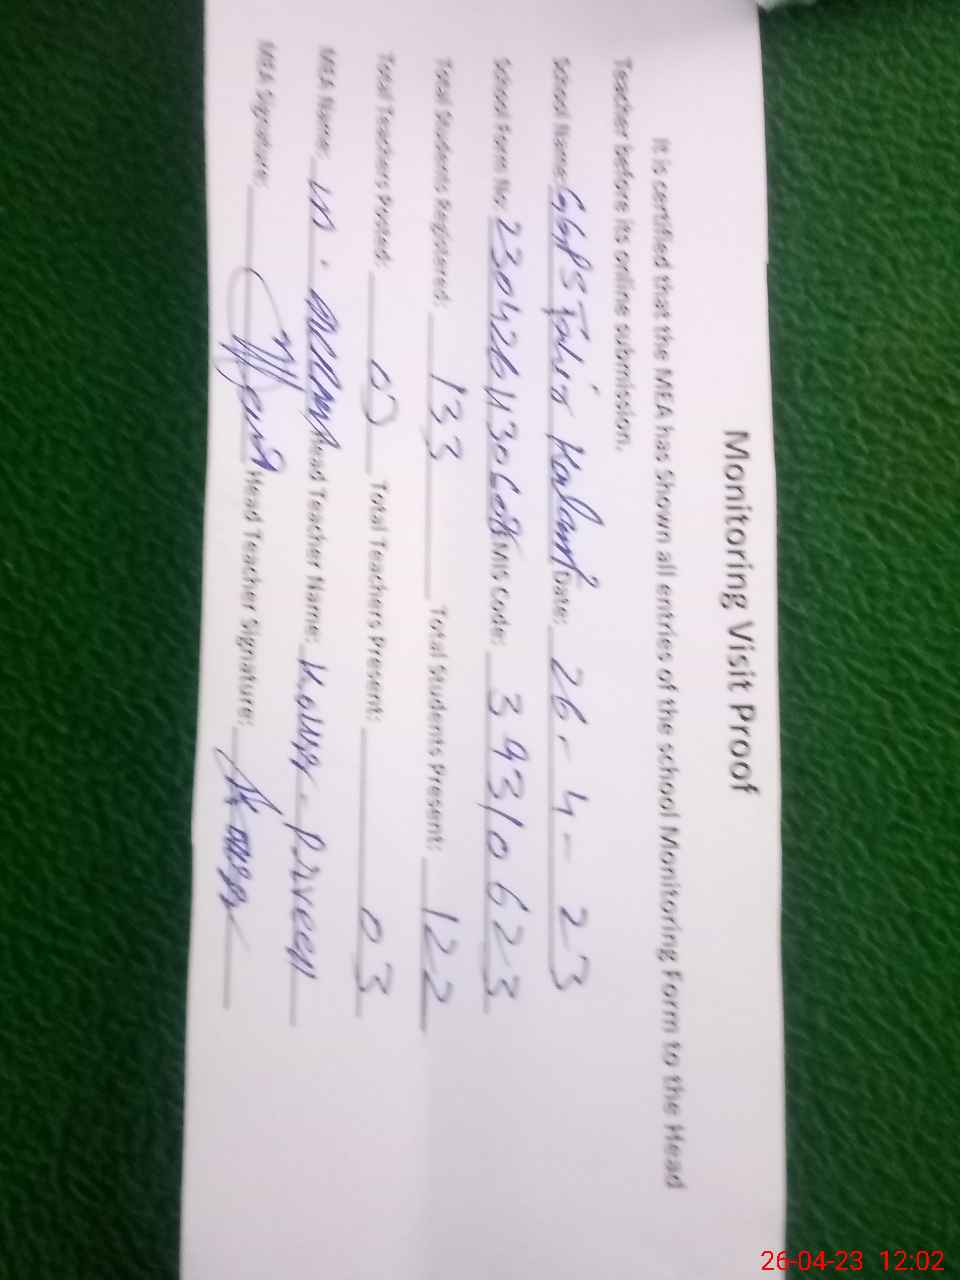 Monitoring Visit Proof
It is certified that the MEA has Shown all entries of the school Monitoring Form to the Head
Teacher before its online submission.
School Name: GGPS Tahir Kalan Date: 26-4-23
School Form No: EMIS Code: 39310623
Total Students Registered: 133 Total Students Present: 122
Total Teachers Posted: 03 Total Teachers Present: 03
MEA Name: M. Akram Head Teacher Name: Kousar Parveen
MEA Signature: Head Teacher Signature: Kousar
26-04-23 12:02